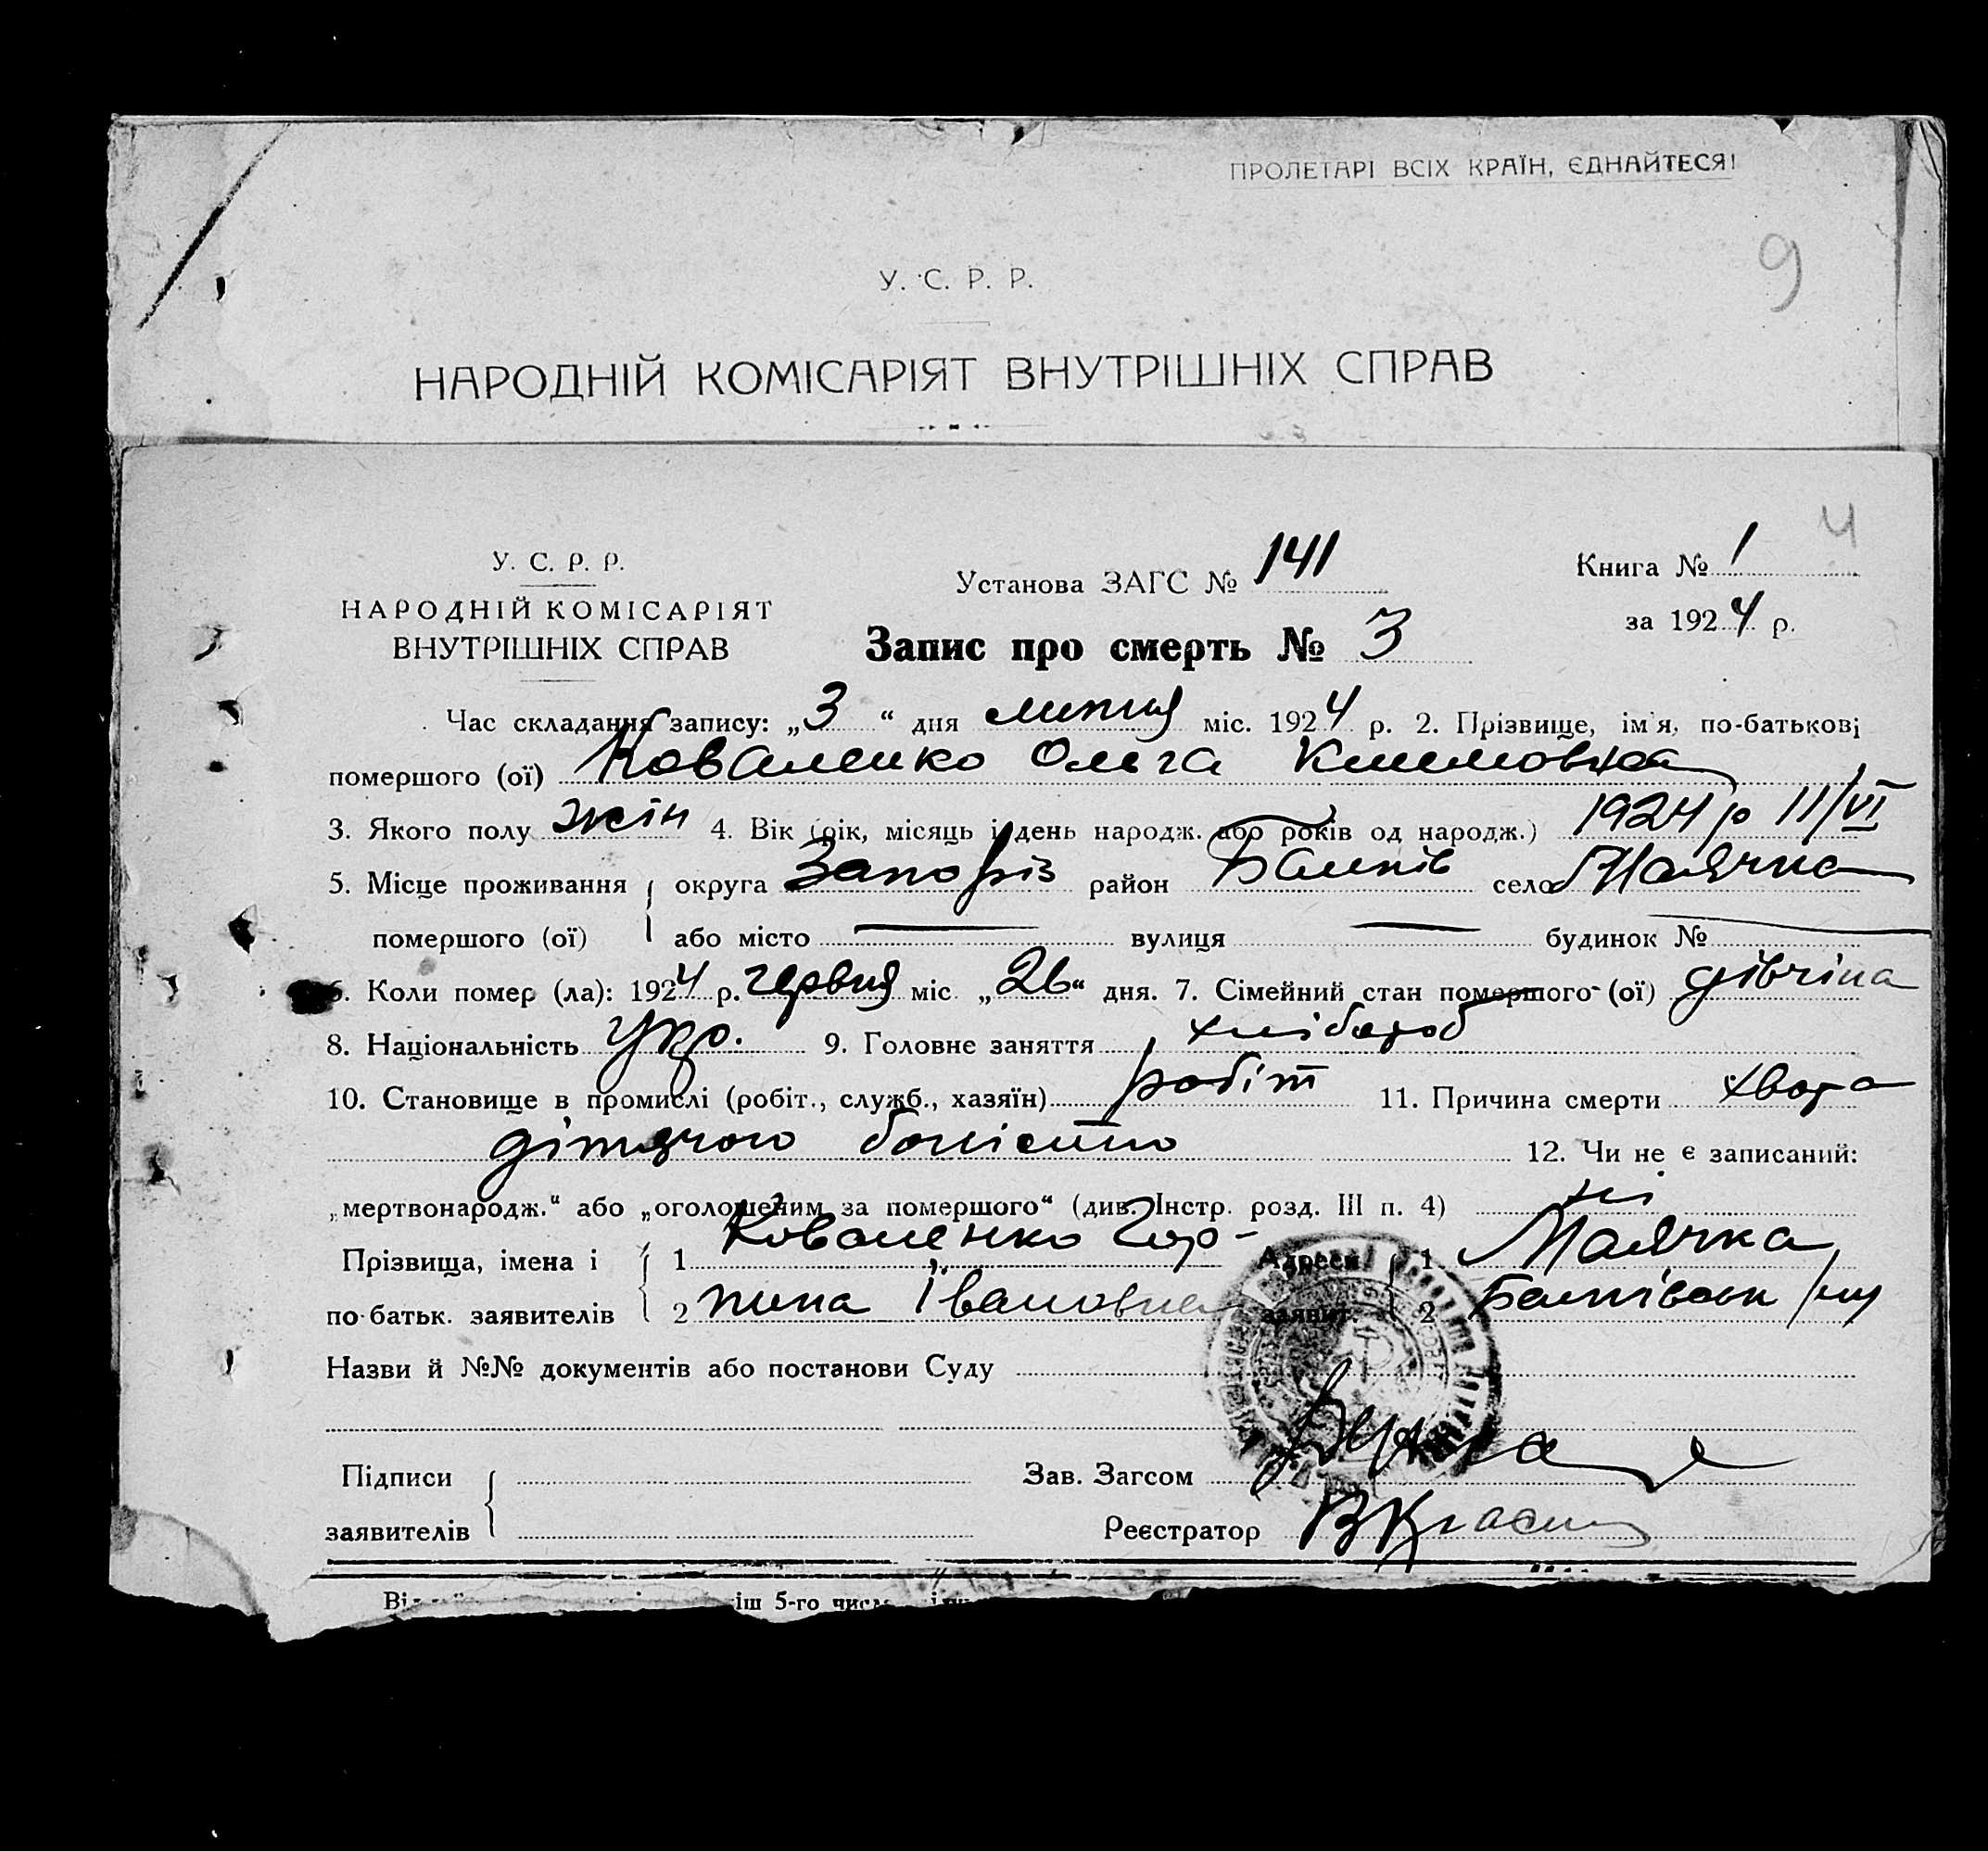 ПРОЛЕТАРІ ВСІХ КРАЇН, ЄДНАЙТЕСЯ!
9
У. С. Р. Р.
НАРОДНІЙ КОМІСАРІЯТ ВНУТРІШНІХ СПРАВ
4
У. С. Р. Р.
НАРОДНІЙ КОМІСАРІЯТ
ВНУТРІШНІХ СПРАВ
Установа ЗАГС № 141
Книга № 1
за 1924 р.
Запис про смерть № 3
Час складання запису: „3“ дня липня міс. 1924 р. 2. Прізвище, ім'я, по-батькові
помершого (ої) Коваленко Ольга Климовна
3. Якого полу жін 4. Вік (рік, місяць і день народж. або років од народж.) 1924 р 11/VI
5. Місце проживання округа Запоріз район Балків село Маячка
помершого (ої) або місто — вулиця — будинок № —
6. Коли помер (ла): 1924 р. червня міс. „26“ дня. 7. Сімейний стан помершого (ої) дівчіна
8. Національність Укр. 9. Головне заняття хлібороб
10. Становище в промислі (робіт., служб., хазяїн) робіт 11. Причина смерти хвора
дітячою болістю 12. Чи не є записаний:
„мертвонародж.“ або „оголошеним за помершого“ (див. Інстр. розд. III п. 4) ні
Прізвища, імена і 1 Коваленко Гор- Адреси 1 Маячка
по-батьк. заявителів 2 пина Івановна заявит. 2 Балківськ
Назви й №№ документів або постанови Суду
Підписи Зав. Загсом
заявителів Реєстратор
іш 5-го числа